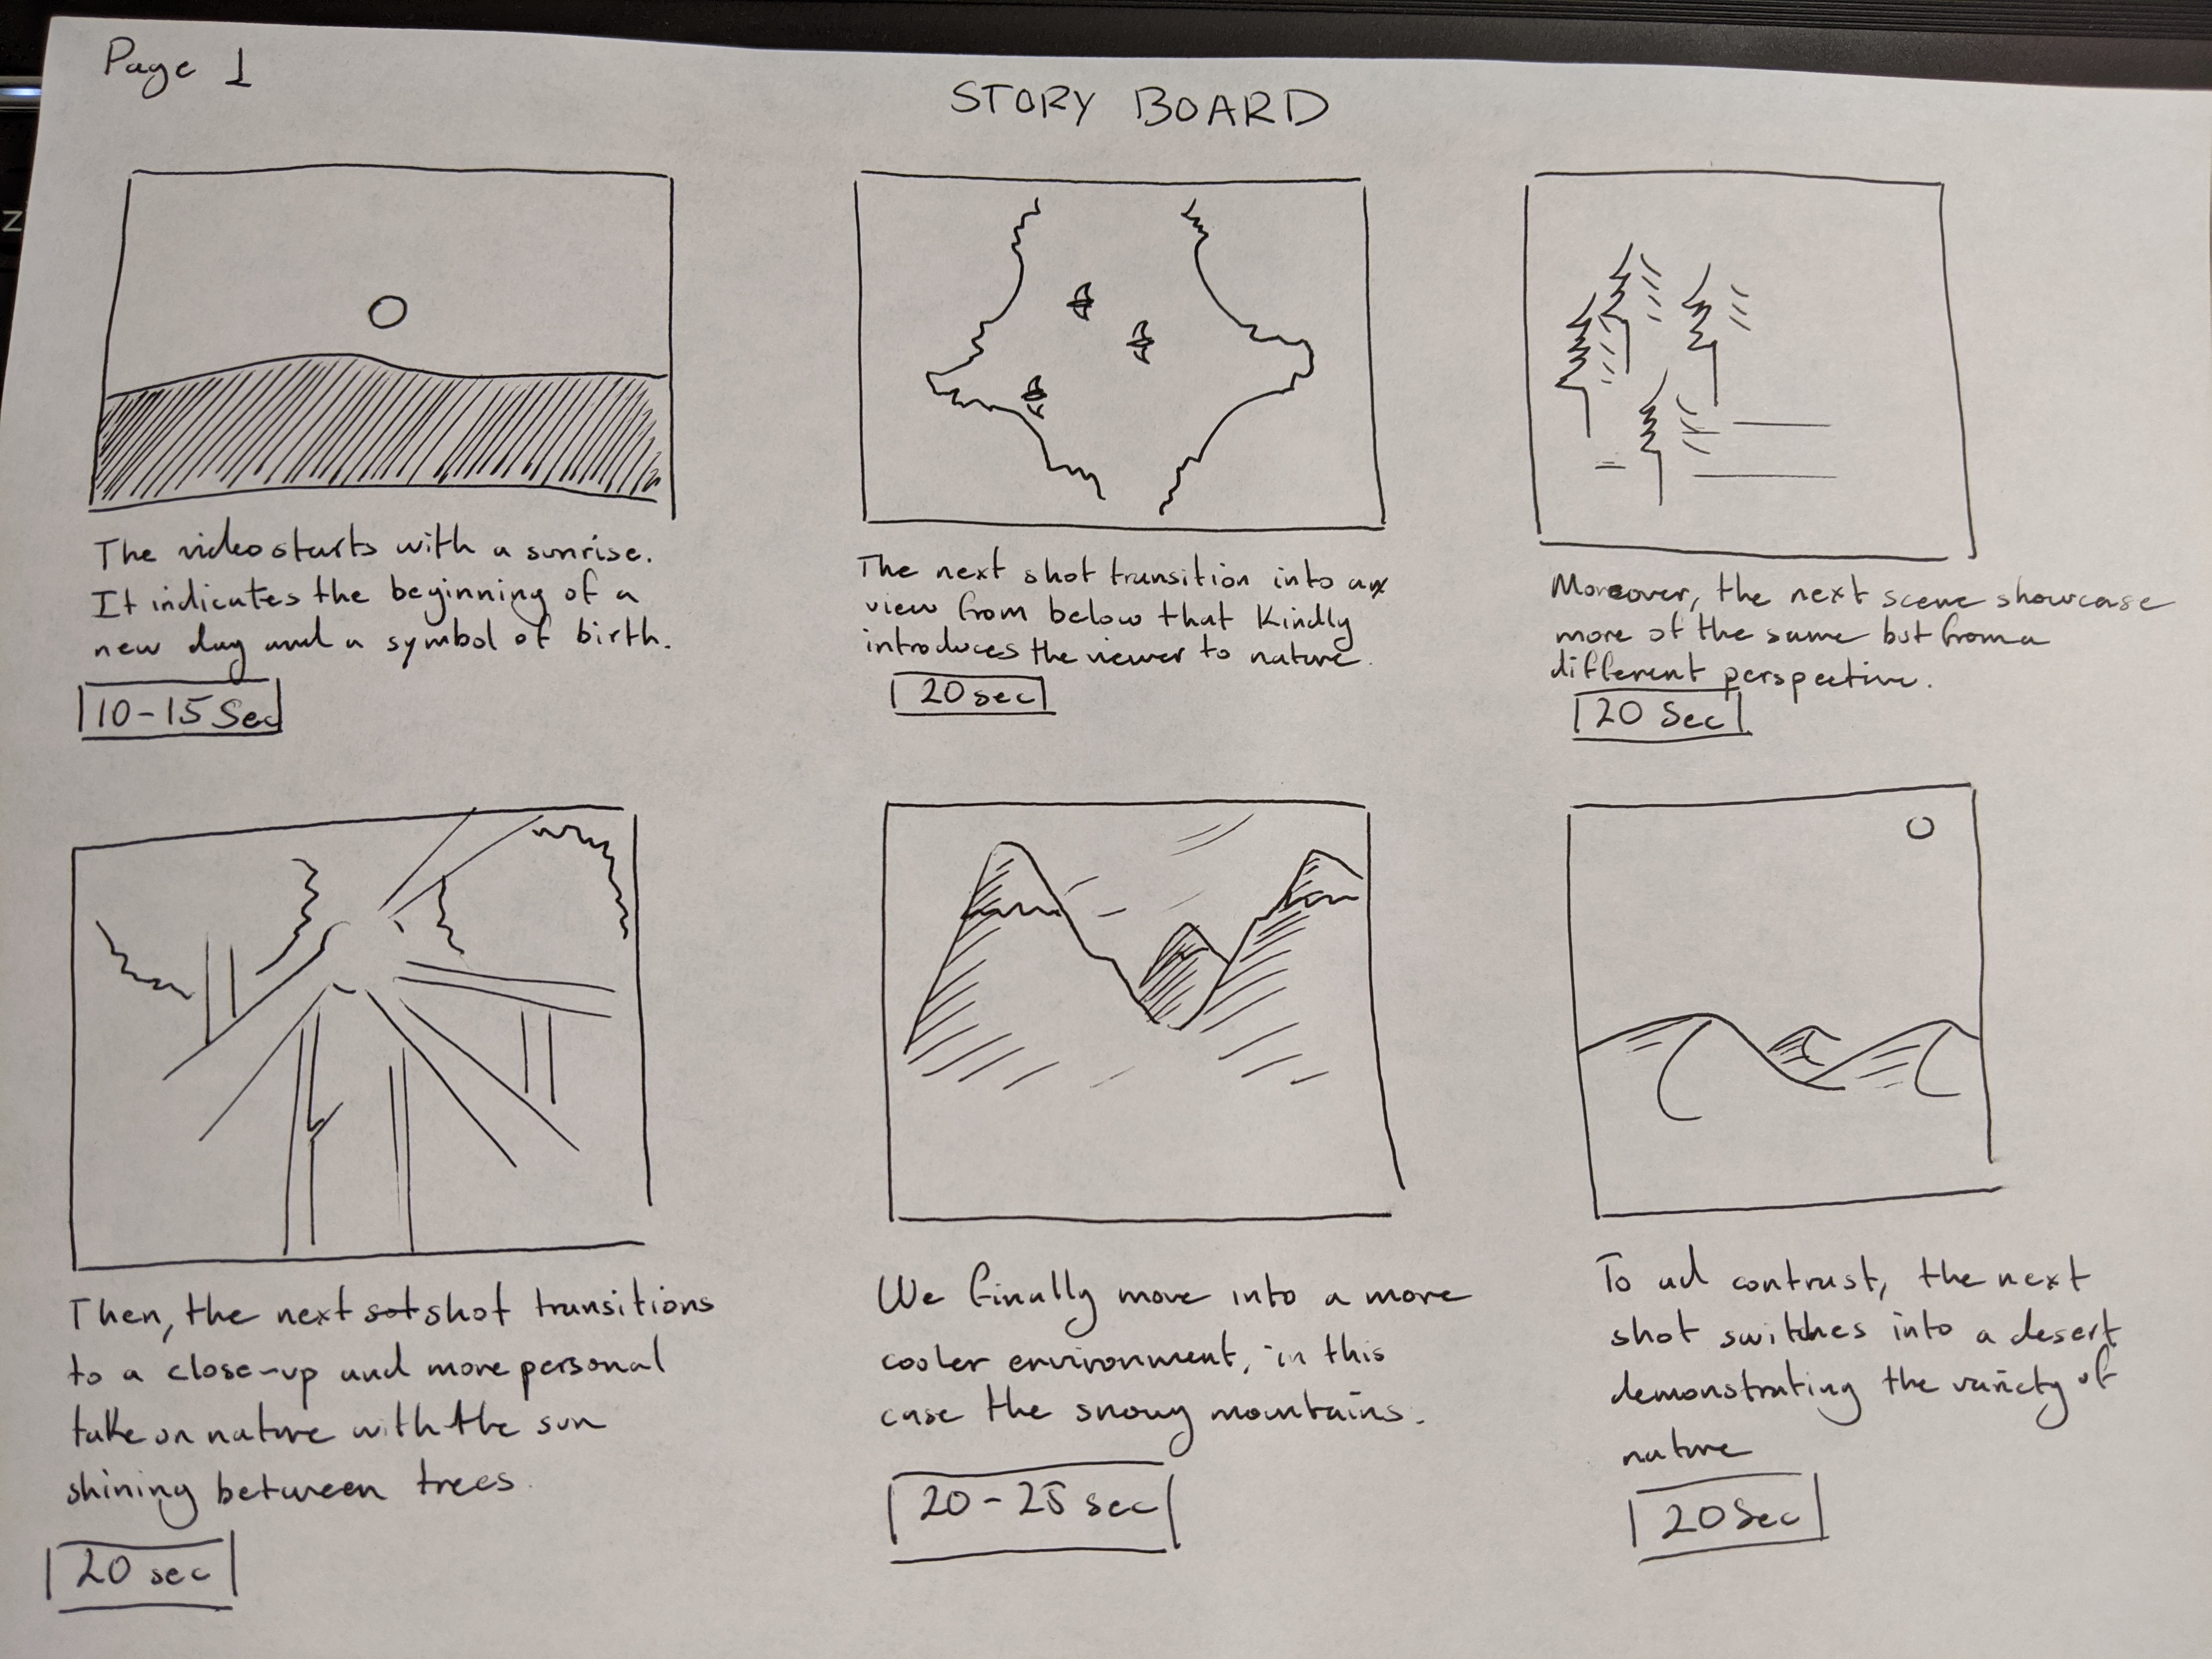 Page 1
STORY BOARD
The video starts with a sunrise.
It indicates the beginning of a
new day and a symbol of birth.
10-15 Sec
The next shot transition into a
view from below that kindly
introduces the viewer to nature.
20 sec
Moreover, the next scene showcase
more of the same but from a
different perspective.
20 Sec
Then, the next sot shot transitions
to a close-up and more personal
take on nature with the sun
shining between trees.
20 sec
We finally move into a more
cooler environment, in this
case the snowy mountains.
20-25 sec
To ad contrast, the next
shot switches into a desert
demonstrating the variety of
nature
20 Sec
Z